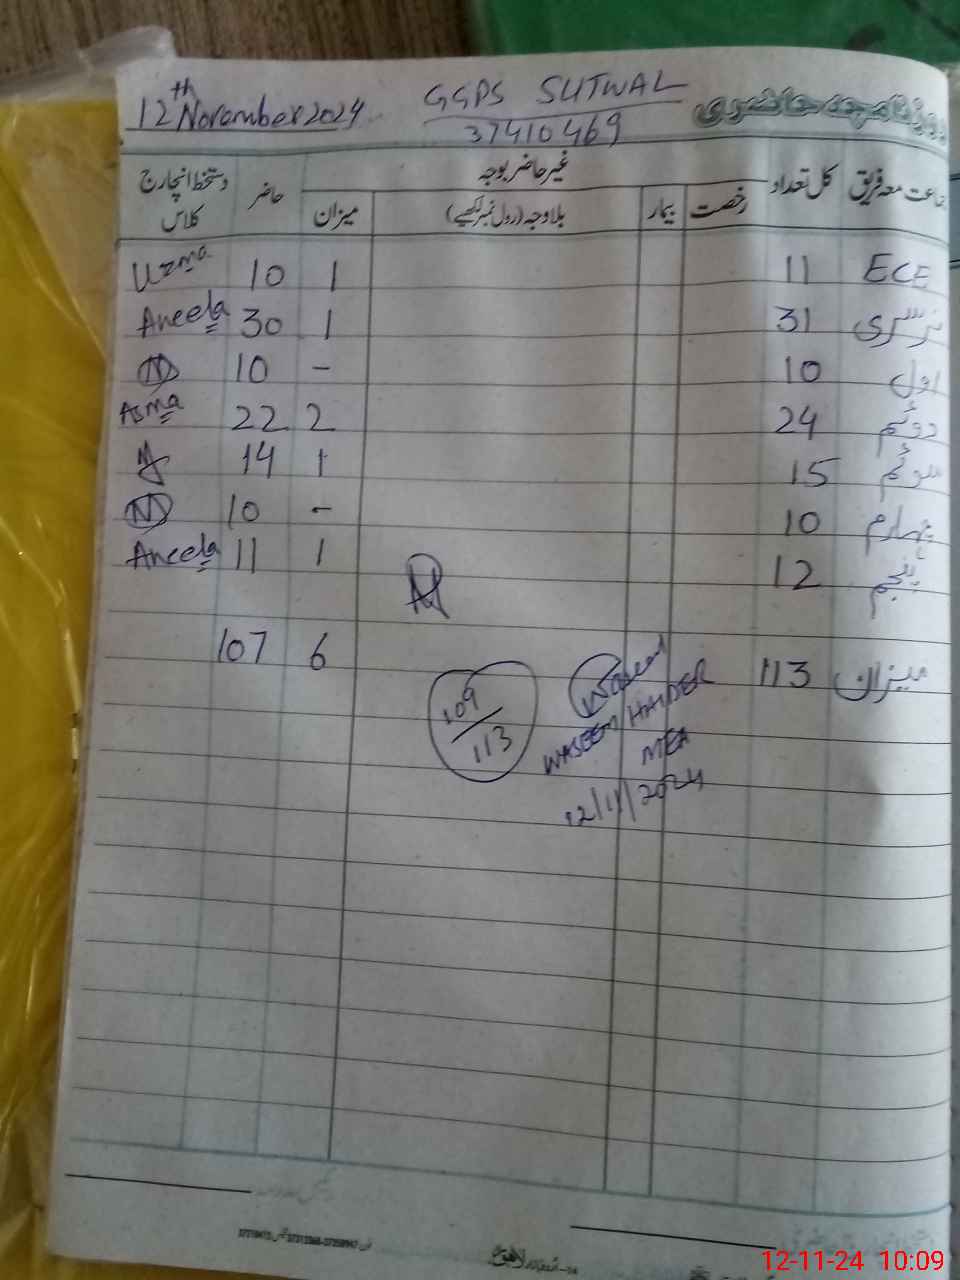 12th November 2024
GGPS SUTWAL
37410469
روزنامچہ حاضری
جماعت معہ فریق کل تعداد غیر حاضر بوجہ حاضر دستخط انچارج کلاس
رخصت بیمار بلاوجہ (رول نمبر لکھیے) میزان
ECE 11 1 10 Uzma
نرسری 31 1 30 Aneela
اول 10 - 10
دوئم 24 2 22 Asma
سوئم 15 1 14
چہارم 10 - 10
پنجم 12 1 11 Aneela
میزان 113 6 107
109/113
Waseem
WASEEM HAIDER
MEA
12/11/2024
لاہور
12-11-24 10:09